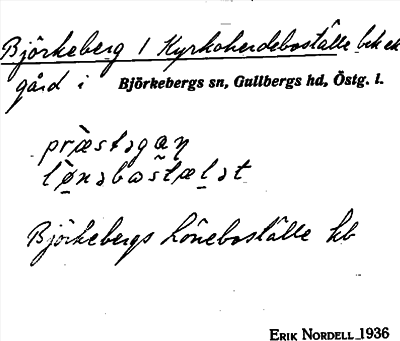 Björkeberg 1 Kyrkoherdeboställe bk ek
gård i Björkebergs sn, Gullbergs hd, Östg. l.
præstəgan
lønəbostælət
Björkebergs Löneboställe kb
ERIK NORDELL 1936